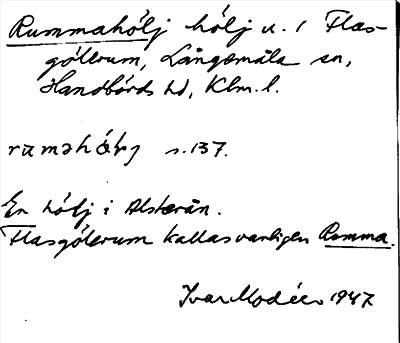 Rummahölj hölj u. / Flas-
gölerum, Långemåla sn,
Handbörds hd, Klm. l.
s. 137.
En hölj i Alsterån.
Flasgölerum kallas vanligen Romma.
Ivar Modéer 1947